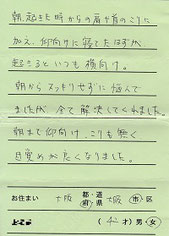 朝、起きた時からの肩や首のこりに
加え、仰向けに寝てたはずが、
起きるといつも横向け。
朝からスッキリせずに悩んで
ましたが、全て解決してくれました。
朝まで仰向け、こりも無く
目覚めが良くなりました。
お住まい 大阪 都・道・府・県 大阪 市・区
(42才) 男・女